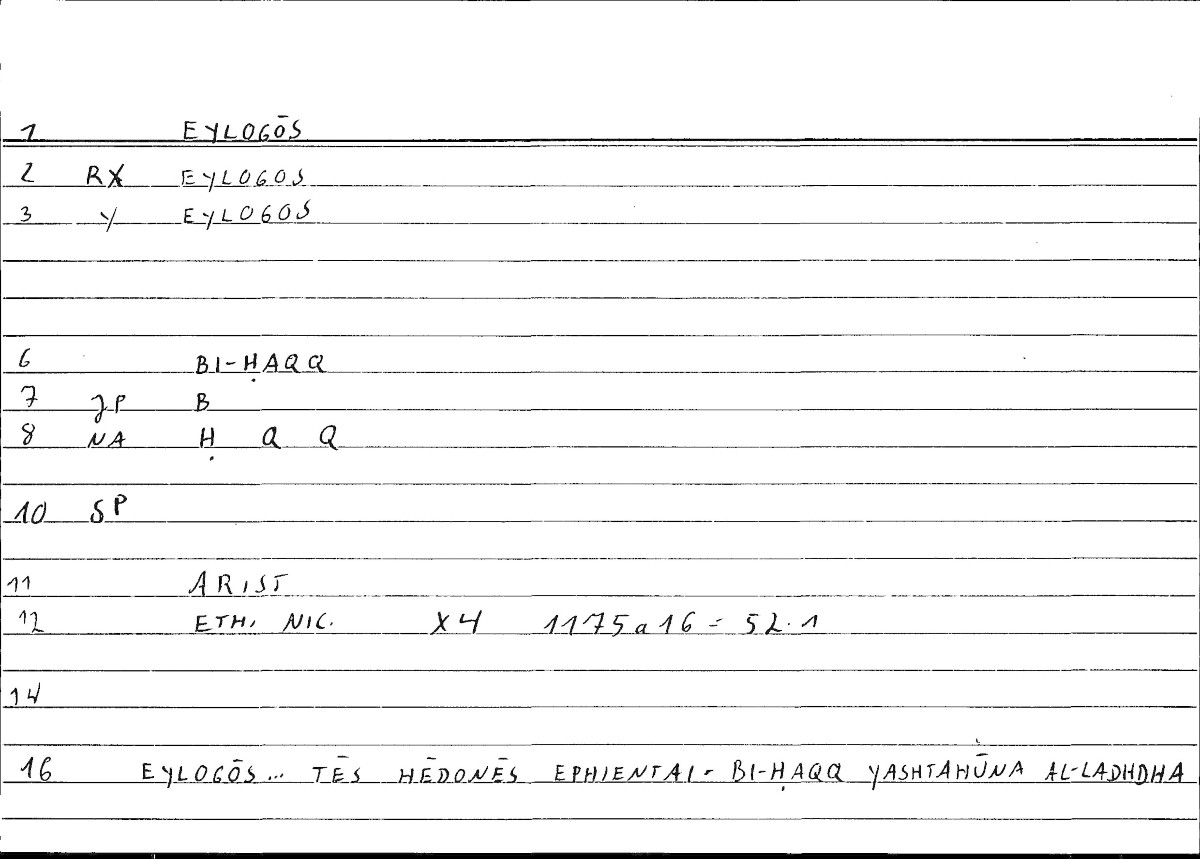 1 EYLOGŌS
2 RX EYLOGOS
3 Y EYLOGOS
6 BI-ḤAQQ
7 JP B
8 NA Ḥ Q Q
10 SP
11 ARIST
12 ETH. NIC. X4 1175a16 = 52.1
14
16 EYLOGŌS... TĒS HĒDONĒS EPHIENTAI = BI-ḤAQQ YASHTAHŪNA AL-LADHDHA